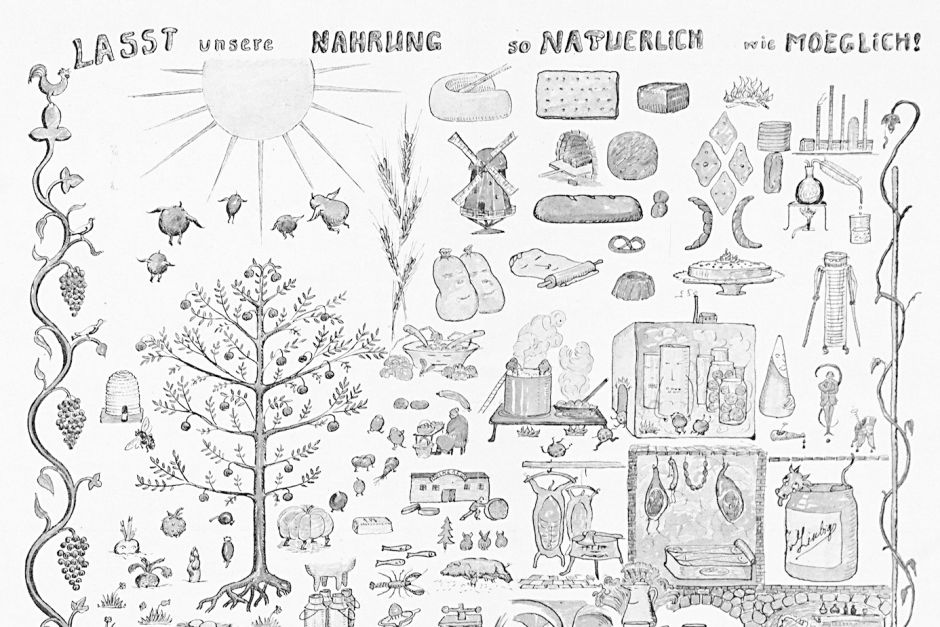 LASST unsere NAHRUNG so NATUERLICH wie MOEGLICH!
Liebig